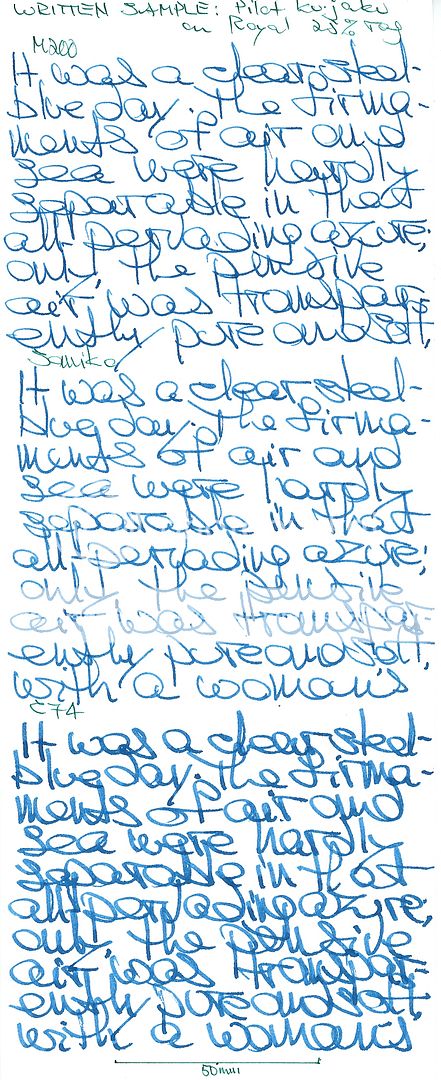 WRITTEN SAMPLE: Pilot kujaku
on Royal 25% rag
M200
It was a clear steel-
blue day. The firma-
ments of air and
sea were hardly
separable in that
all-pervading azure;
only, the pensive
air was transpar-
ently pure and soft,
Samika
It was a clear steel-
blue day. The firma-
ments of air and
sea were hardly
separable in that
all-pervading azure;
only, the pensive
air was transpar-
ently pure and soft,
with a woman's
C74
It was a clear steel-
blue day. The firma-
ments of air and
sea were hardly
separable in that
all-pervading azure;
only, the pensive
air was transpar-
ently pure and soft
with a woman's
50mm